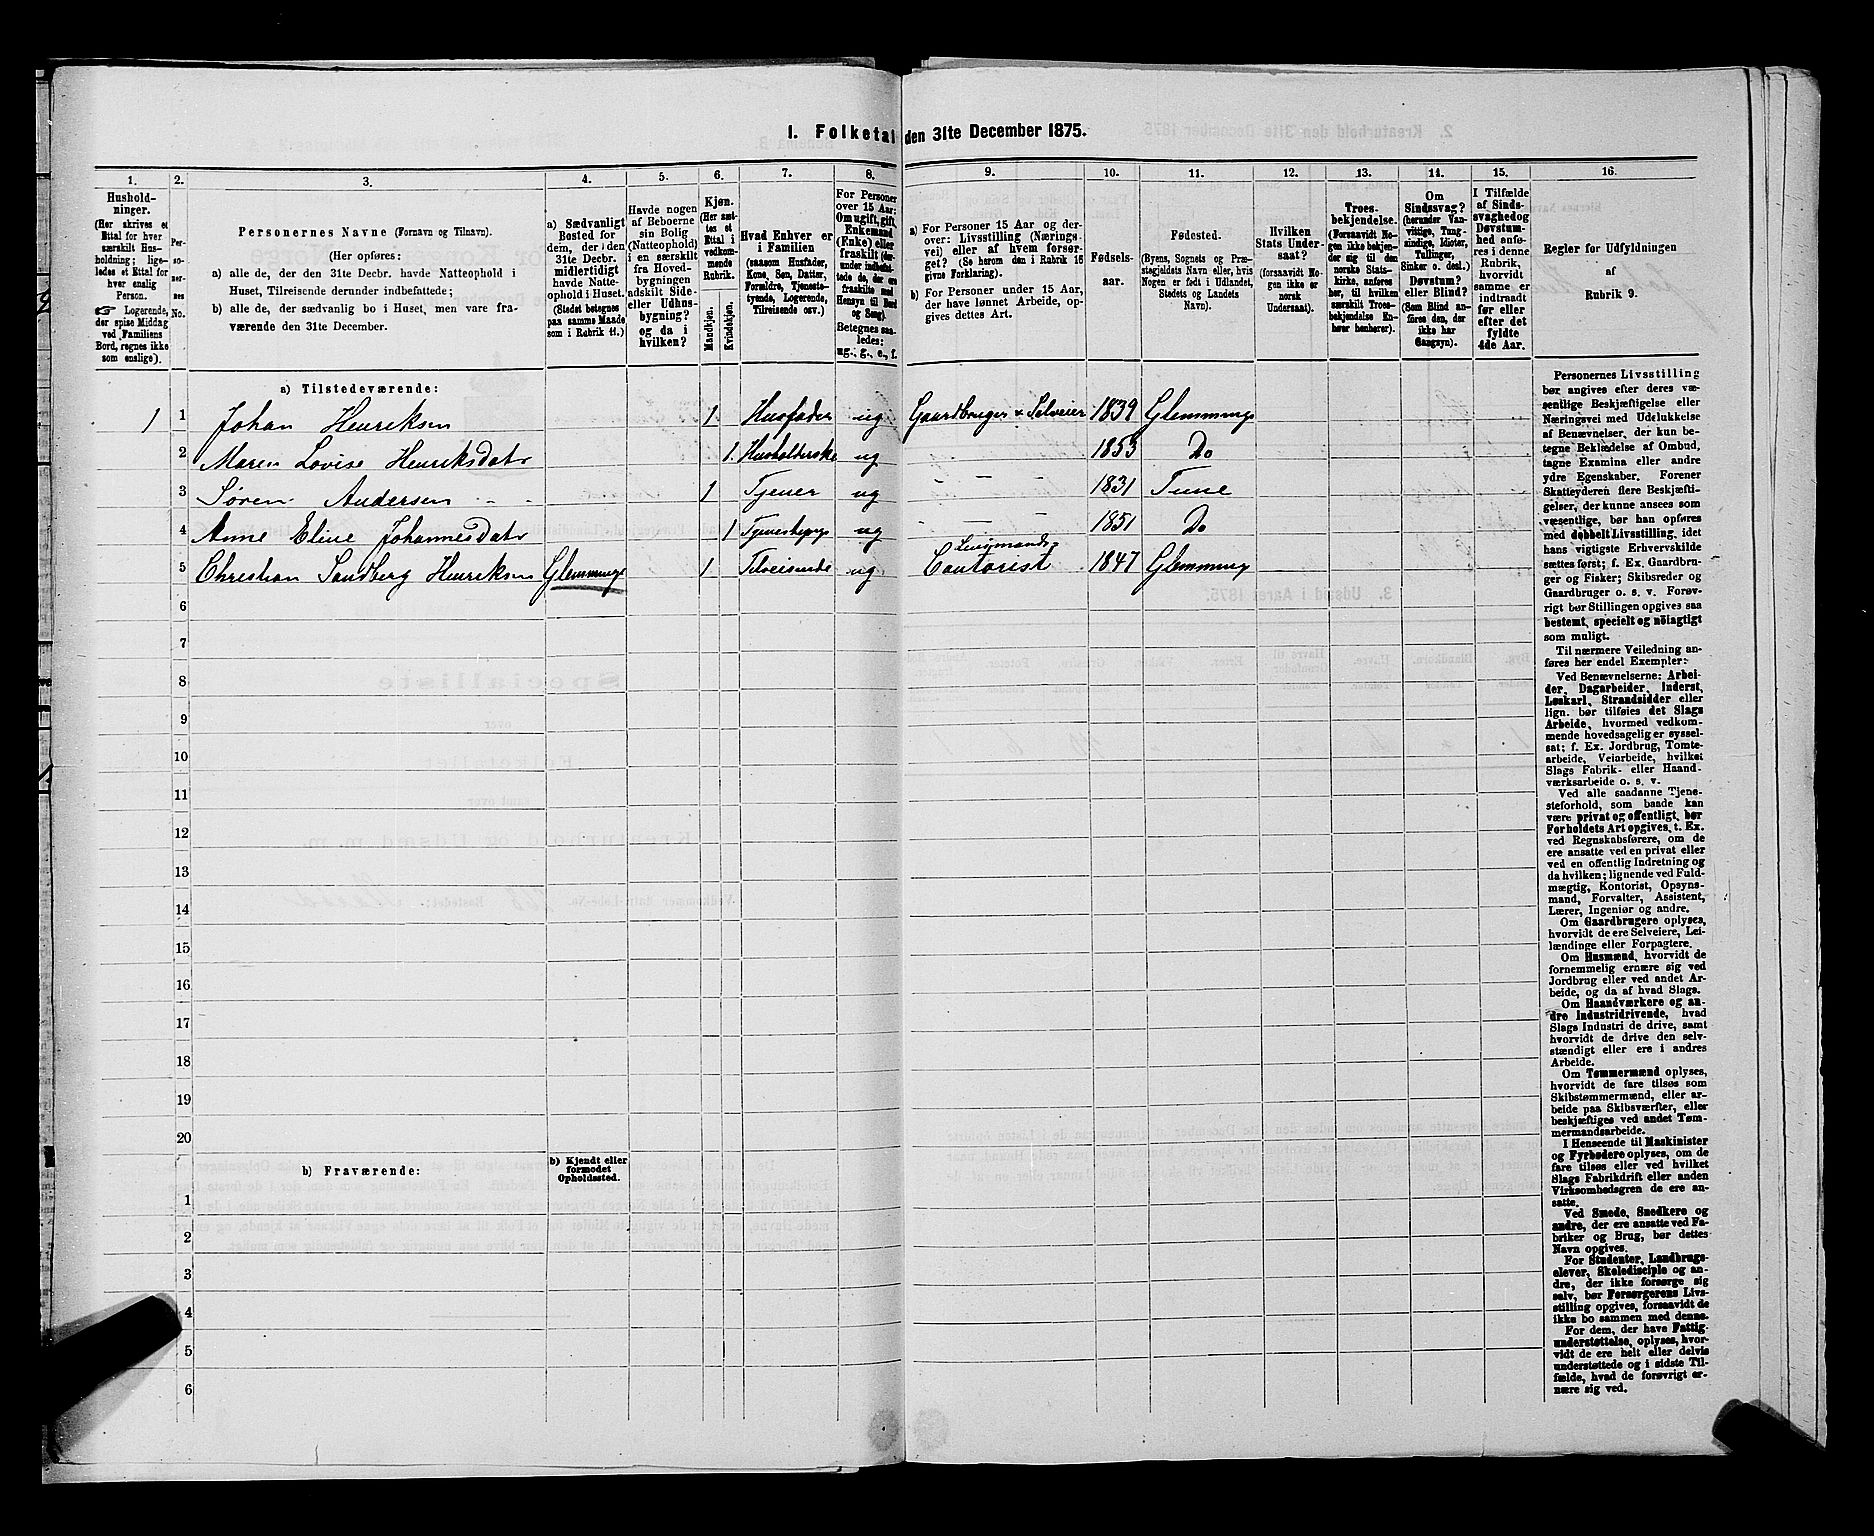 1. Folketal den 31te December 1875.
1. 2. 3. 4. 5. 6. 7. 8. 9. 10. 11. 12. 13. 14. 15. 16.
Hushold-
ninger.
(Her skrives et
Ettal for hver
særskilt Hus-
holdning; lige-
ledes et Ettal for
hver enslig
Person.
☞ Logerende,
der spise Middag
ved Familiens
Bord, regnes ikke
som enslige).
Per-
so-
ner-
nes
No.
Personernes Navne (Fornavn og Tilnavn).
(Her opføres:
a) alle de, der den 31te Decbr. havde Natteophold i
Huset, Tilreisende derunder indbefattede;
b) alle de, der sædvanlig bo i Huset, men vare fra-
værende den 31te December.
a) Sædvanligt
Bosted for
dem, der i den
31te Decbr.
midlertidigt
havde Natte-
ophold i Huset.
(Stedet betegnes
paa samme Maade
som i Rubrik 11.)
Havde nogen
af Beboerne
sin Bolig
(Natteophold)
i en særskilt
fra Hoved-
bygningen
adskilt Side-
eller Udhus-
bygning?
og da i
hvilken?
Kjøn.
(Her sæt-
tes et
Ettal i
vedkom-
mende
Rubrik.
Mandkjøn.
Kvindekjøn.
Hvad Enhver er
i Familien
(saasom Husfader,
Kone, Søn, Datter,
Forældre, Tjeneste-
tyende, Logerende,
Tilreisende osv.)
For Personer
over 15 Aar:
Om ugift, gift
Enkemand
(Enke) eller
fraskilt (der-
under indbefat-
tede de, der ere
fraskilte med
Hensyn til Bord
og Seng).
Betegnes saa-
ledes:
ug., g., e., f.
a) For Personer 15 Aar og der-
over: Livsstilling (Nærings-
vei) eller af hvem forsør-
get? (Se herom den i Rubrik 16
givne Forklaring).
b) For Personer under 15 Aar,
der have lønnet Arbeide, op-
gives dettes Art.
Fødsels-
aar.
Fødested.
(Byens, Sognets og Præ-
stegjeldets Navn eller, hvis
Nogen er født i Udlandet,
Stedets og Landets
Navn).
Hvilken
Stats Under-
saat?
(forsaavidt No-
gen ikke er
norsk
Undersaat).
Troes-
bekjendelse.
(Forsaavidt No-
gen ikke bekjen-
der sig til den
norske Stats-
kirke, anføres
her, til hvilken
særskilt Troes-
bekjendelse En-
hver henhører).
Om
Sindssvag?
(herunder Van-
vittige, Tung-
sindige, Idioter,
Tullinger,
Sinker o. desl.)
Døvstum?
eller Blind?
(Som Blind an-
føres den, der
ikke har
Gangsyn).
I Tilfælde
af Sinds-
svaghed og
Døvstum-
hed anfø-
res i denne
Rubrik,
hvorvidt
samme er
indtraadt
før eller
efter det
fyldte
4de Aar.
Regler for Udfyldningen
af
Rubrik 9.
a) Tilstedeværende:
1 1 Johan Henriksen 1 Husfader ug Gaardbruger & Selveier 1839 Glemminge
2 Maren Lovise Henriksdatr 1 Husholderske ug 1853 Do
3 Søren Andersen 1 Tjener ug 1831 Tune
4 Anne Eline Johannesdatr 1 Tjenestepige ug 1851 Do
5 Christian Sandberg Henriksen Glemminge 1 Tilreisende ug Lensmands- Contorist 1847 Glemming
6
7
8
9
10
11
12
13
14
15
16
17
18
19
20
b) Fraværende:
b) Kjendt eller
formodet
Opholdssted.
1
2
3
4
5
6
Personernes Livsstilling
bør angives efter deres væ-
sentlige Beskjæftigelse eller
Næringsvei med Udelukkelse
af Benævnelser, der kun be-
tegne Beklædelse af Ombud,
tagne Examina eller andre
ydre Egenskaber. Forener
Skatteyderen flere Beskjæfti-
gelser, der kunne ansees som
væsentlige, bør han opføres
med dobbelt Livsstilling, idet
hans vigtigste Erhvervskilde
sættes først; f. Ex. Gaardbru-
ger og Fisker; Skibsreder og
Gaardbruger o. s. v. Forøv-
rigt bør Stillingen opgives saa
bestemt, specielt og nöiagtigt
som muligt.
Til nærmere Veiledning an-
føres her endel Exempler:
Ved Benævnelserne: Arbei-
der, Dagarbeider, Inderst,
Løskarl, Strandsidder eller
lign. bør tilføies det Slags
Arbeide, hvormed vedkom-
mende hovedsagelig er syssel-
sat; f. Ex. Jordbrug, Tomte-
arbeide, Veiarbeide, hvilket
Slags Fabrik- eller Haand-
værksarbeide o. s. v.
Ved alle saadanne Tjene-
steforhold, som baade kan
være privat og offentligt, bør
Forholdets Art opgives, t. Ex.
ved Regnskabsførere, om de
ere ansatte ved en privat eller
ved en offentlig Indretning og
da hvilken; lignende ved Fuld-
mægtig, Kontorist, Opsyns-
mand, Forvalter, Assistent,
Lærer, Ingeniør og andre.
Om Gaardbrugere oplyses,
hvorvidt de ere Selveiere, Lei-
lændinge eller Forpagtere.
Om Husmænd, hvorvidt de
fornemmelig ernære sig ved
Jordbrug eller ved andet Ar-
beide, og da af hvad Slags.
Om Haandværkere og an-
dre Industridrivende, hvad
Slags Industri de drive, samt
hvorvidt de drive den selv-
stændigt eller ere i andres
Arbeide.
Om Tømmermænd oplyses,
hvorvidt de fare tilsøs som
Skibstømmermænd, eller ar-
beide paa Skibsværfter, eller
beskjæftiges ved andet Tøm-
mermandsarbeide.
I Henseende til Maskinister
og Fyrbødere oplyses, om de
fare tilsøs eller ved hvilket
Slags Fabrikdrift eller anden
Virksomhedsgren de ere an-
satte.
Ved Smede, Snedkere og
andre, der ere ansatte ved Fa-
briker og Brug, bør dettes
Navn opgives.
For Studenter, Landbrugs-
elever, Skoledisciple og an-
dre, der ikke forsørge sig
selv, bør Forsørgerens Livs-
stilling opgives, forsaavidt de
ikke bo sammen med denne.
For dem, der have Fattig-
understøttelse, oplyses, hvor-
vidt de ere helt eller delvis
understøttede og i sidste Til-
fælde, hvad de forøvrigt er-
nære sig ved.